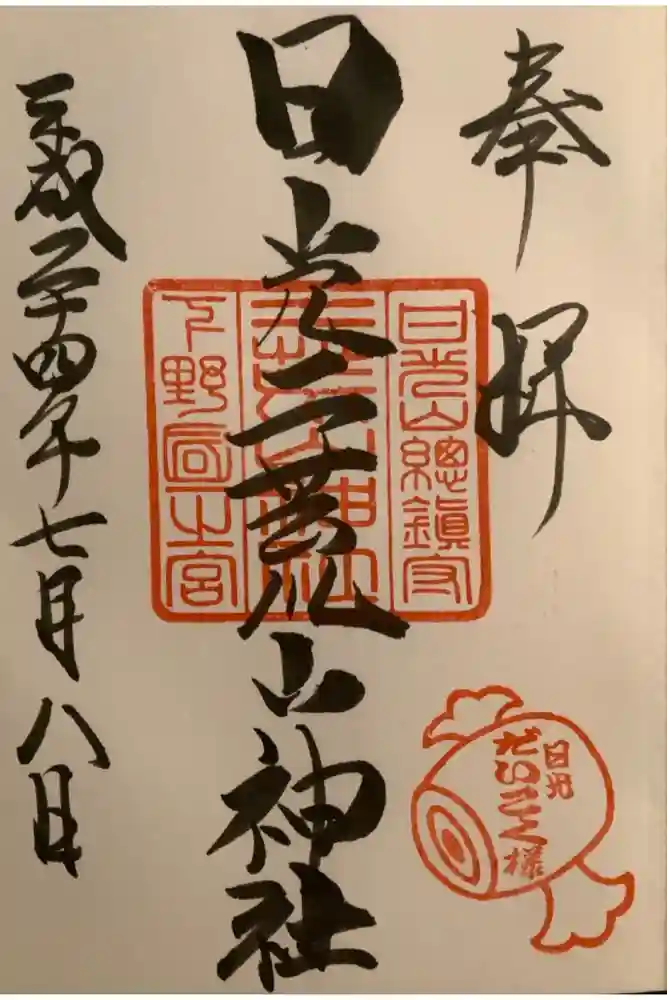 奉拝
日光二荒山神社
平成二十四年七月八日
日光山總鎮守
二荒山神社
下野國一之宮
日光
だいこく様